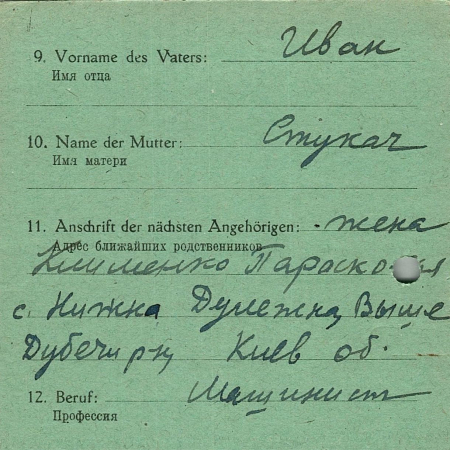 9. Vorname des Vaters: Иван
Имя отца
10. Name der Mutter: Стукач
Имя матери
11. Anschrift der nächsten Angehörigen: жена
Адрес ближайших родственников
Клименко
с. Нижна Выше
Киев об.
12. Beruf: Машинист
Профессия